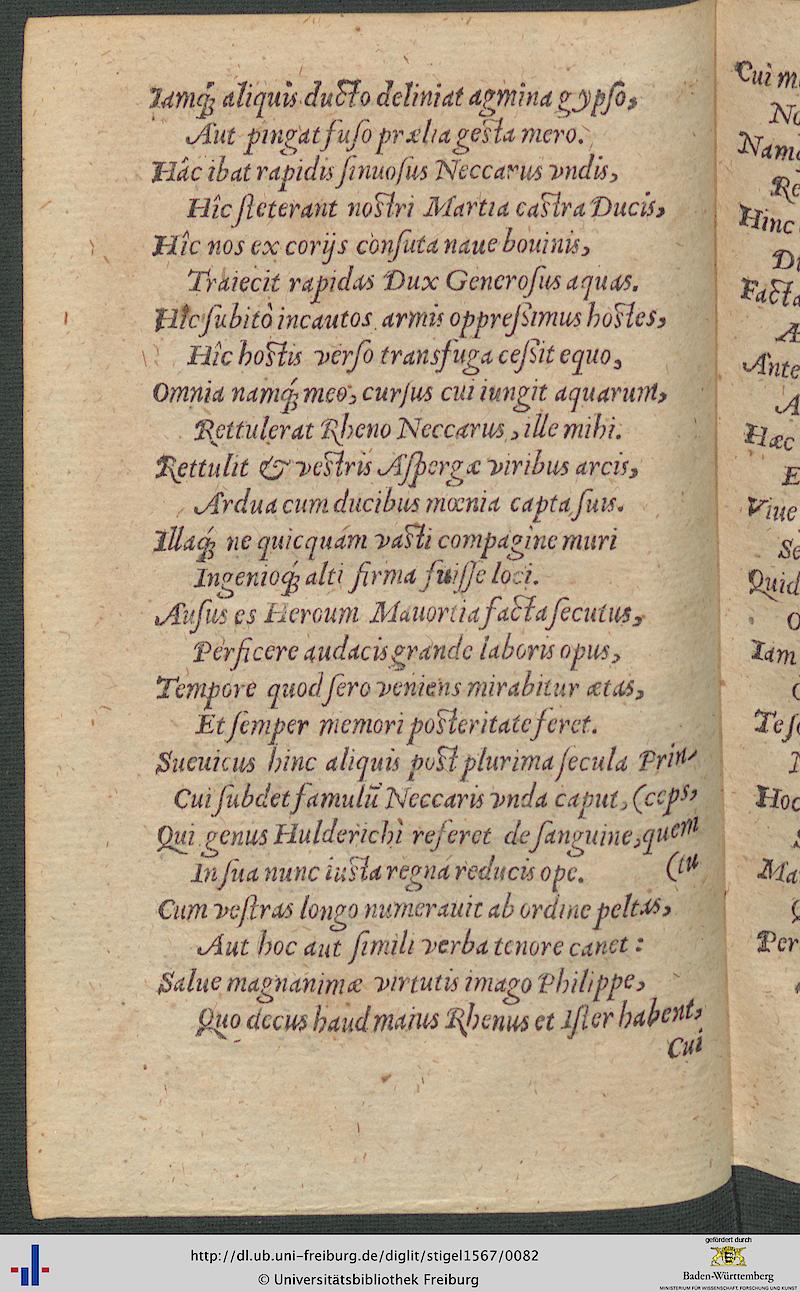 Iamq́; aliquis ducto deliniat agmina gypso,
Aut pingat fuso prælia gesta mero.
Hâc ibat rapidis sinuosus Neccarus vndis,
Hîc steterant nostri Martia castra Ducis,
Hîc nos ex corijs consuta naue bouinis,
Traiecit rapidas Dux Generosus aquas.
Hîc subitò incautos armis oppressimus hostes,
Hîc hostis verso transfuga cessit equo,
Omnia namq́; meo, cursus cui iungit aquarum,
Rettulerat Rheno Neccarus, ille mihi.
Rettulit & vestris Aspergæ viribus arcis,
Ardua cum ducibus mœnia capta suis.
Illaq́; ne quicquàm vasti compagine muri
Ingenioq́; alti firma fuisse loci.
Ausus es Heroum Mauortia facta secutus,
Perficere audacis grande laboris opus,
Tempore quod sero veniens mirabitur ætas,
Et semper memori posteritate feret.
Sueuicus hinc aliquis post plurima secula Prin-
Cui subdet famulū Neccaris vnda caput, (ceps,
Qui genus Hulderichi referet de sanguine, quem
In sua nunc iusta regna reducis ope. (tu
Cum vestras longo numerauit ab ordine peltas,
Aut hoc aut simili verba tenore canet:
Salue magnanimæ virtutis imago Philippe,
Quo decus haud maius Rhenus et Ister habent,
Cui
Cui
No
Nam
Re
Hinc
Di
Facta
A
Ante
A
Hæc
E
Viue
Se
Quid
O
Iam
Hoc
Ma
Per
http://dl.ub.uni-freiburg.de/diglit/stigel1567/0082
© Universitätsbibliothek Freiburg
gefördert durch
Baden-Württemberg
MINISTERIUM FÜR WISSENSCHAFT, FORSCHUNG UND KUNST